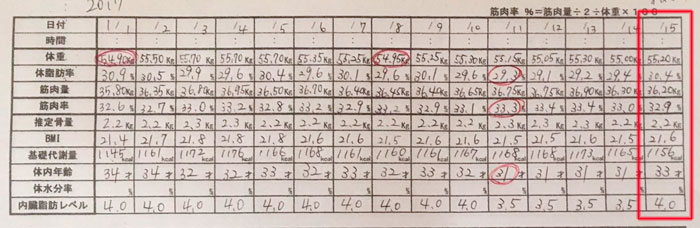 : 2017
筋肉率 %=筋肉量÷2÷体重×100
日付 1/1 1/2 1/3 1/4 1/5 1/6 1/7 1/8 1/9 1/10 1/11 1/12 1/13 1/14 1/15
時間 : : : : : : : : : : : : : : :
体重 54.90Kg 55.50Kg 55.70Kg 55.70Kg 55.70Kg 55.35Kg 55.25Kg 54.95Kg 55.25Kg 55.30Kg 55.15Kg 55.05Kg 55.30Kg 55.00Kg 55.20Kg
体脂肪率 30.9% 30.5% 29.9% 29.6% 30.4% 29.6% 30.1% 29.6% 30.1% 29.6% 29.3% 29.1% 29.2% 29.4% 30.4%
筋肉量 35.80Kg 36.35Kg 36.80Kg 36.95Kg 36.50Kg 36.70Kg 36.40Kg 36.45Kg 36.40Kg 36.65Kg 36.75Kg 36.75Kg 36.90Kg 36.30Kg 36.20Kg
筋肉率 32.6% 32.7% 33.0% 33.2% 32.8% 33.2% 32.9% 33.2% 32.9% 33.1% 33.3% 33.4% 33.4% 33.0% 32.9%
推定骨量 2.2Kg 2.2Kg 2.3Kg 2.3Kg 2.2Kg 2.2Kg 2.2Kg 2.2Kg 2.2Kg 2.2Kg 2.3Kg 2.3Kg 2.3Kg 2.2Kg 2.2Kg
BMI 21.4 21.7 21.8 21.8 21.8 21.6 21.6 21.5 21.6 21.6 21.5 21.5 21.6 21.5 21.6
基礎代謝量 1145kcal 1161kcal 1172kcal 1176kcal 1166kcal 1168kcal 1161kcal 1160kcal 1161kcal 1167kcal 1168kcal 1168kcal 1173kcal 1165kcal 1156kcal
体内年齢 34才 34才 32才 32才 33才 32才 33才 32才 33才 32才 31才 31才 31才 31才 33才
体水分率 % % % % % % % % % % % % % % %
内臓脂肪レベル 4.0 4.0 4.0 4.0 4.0 4.0 4.0 4.0 4.0 4.0 3.5 3.5 3.5 3.5 4.0